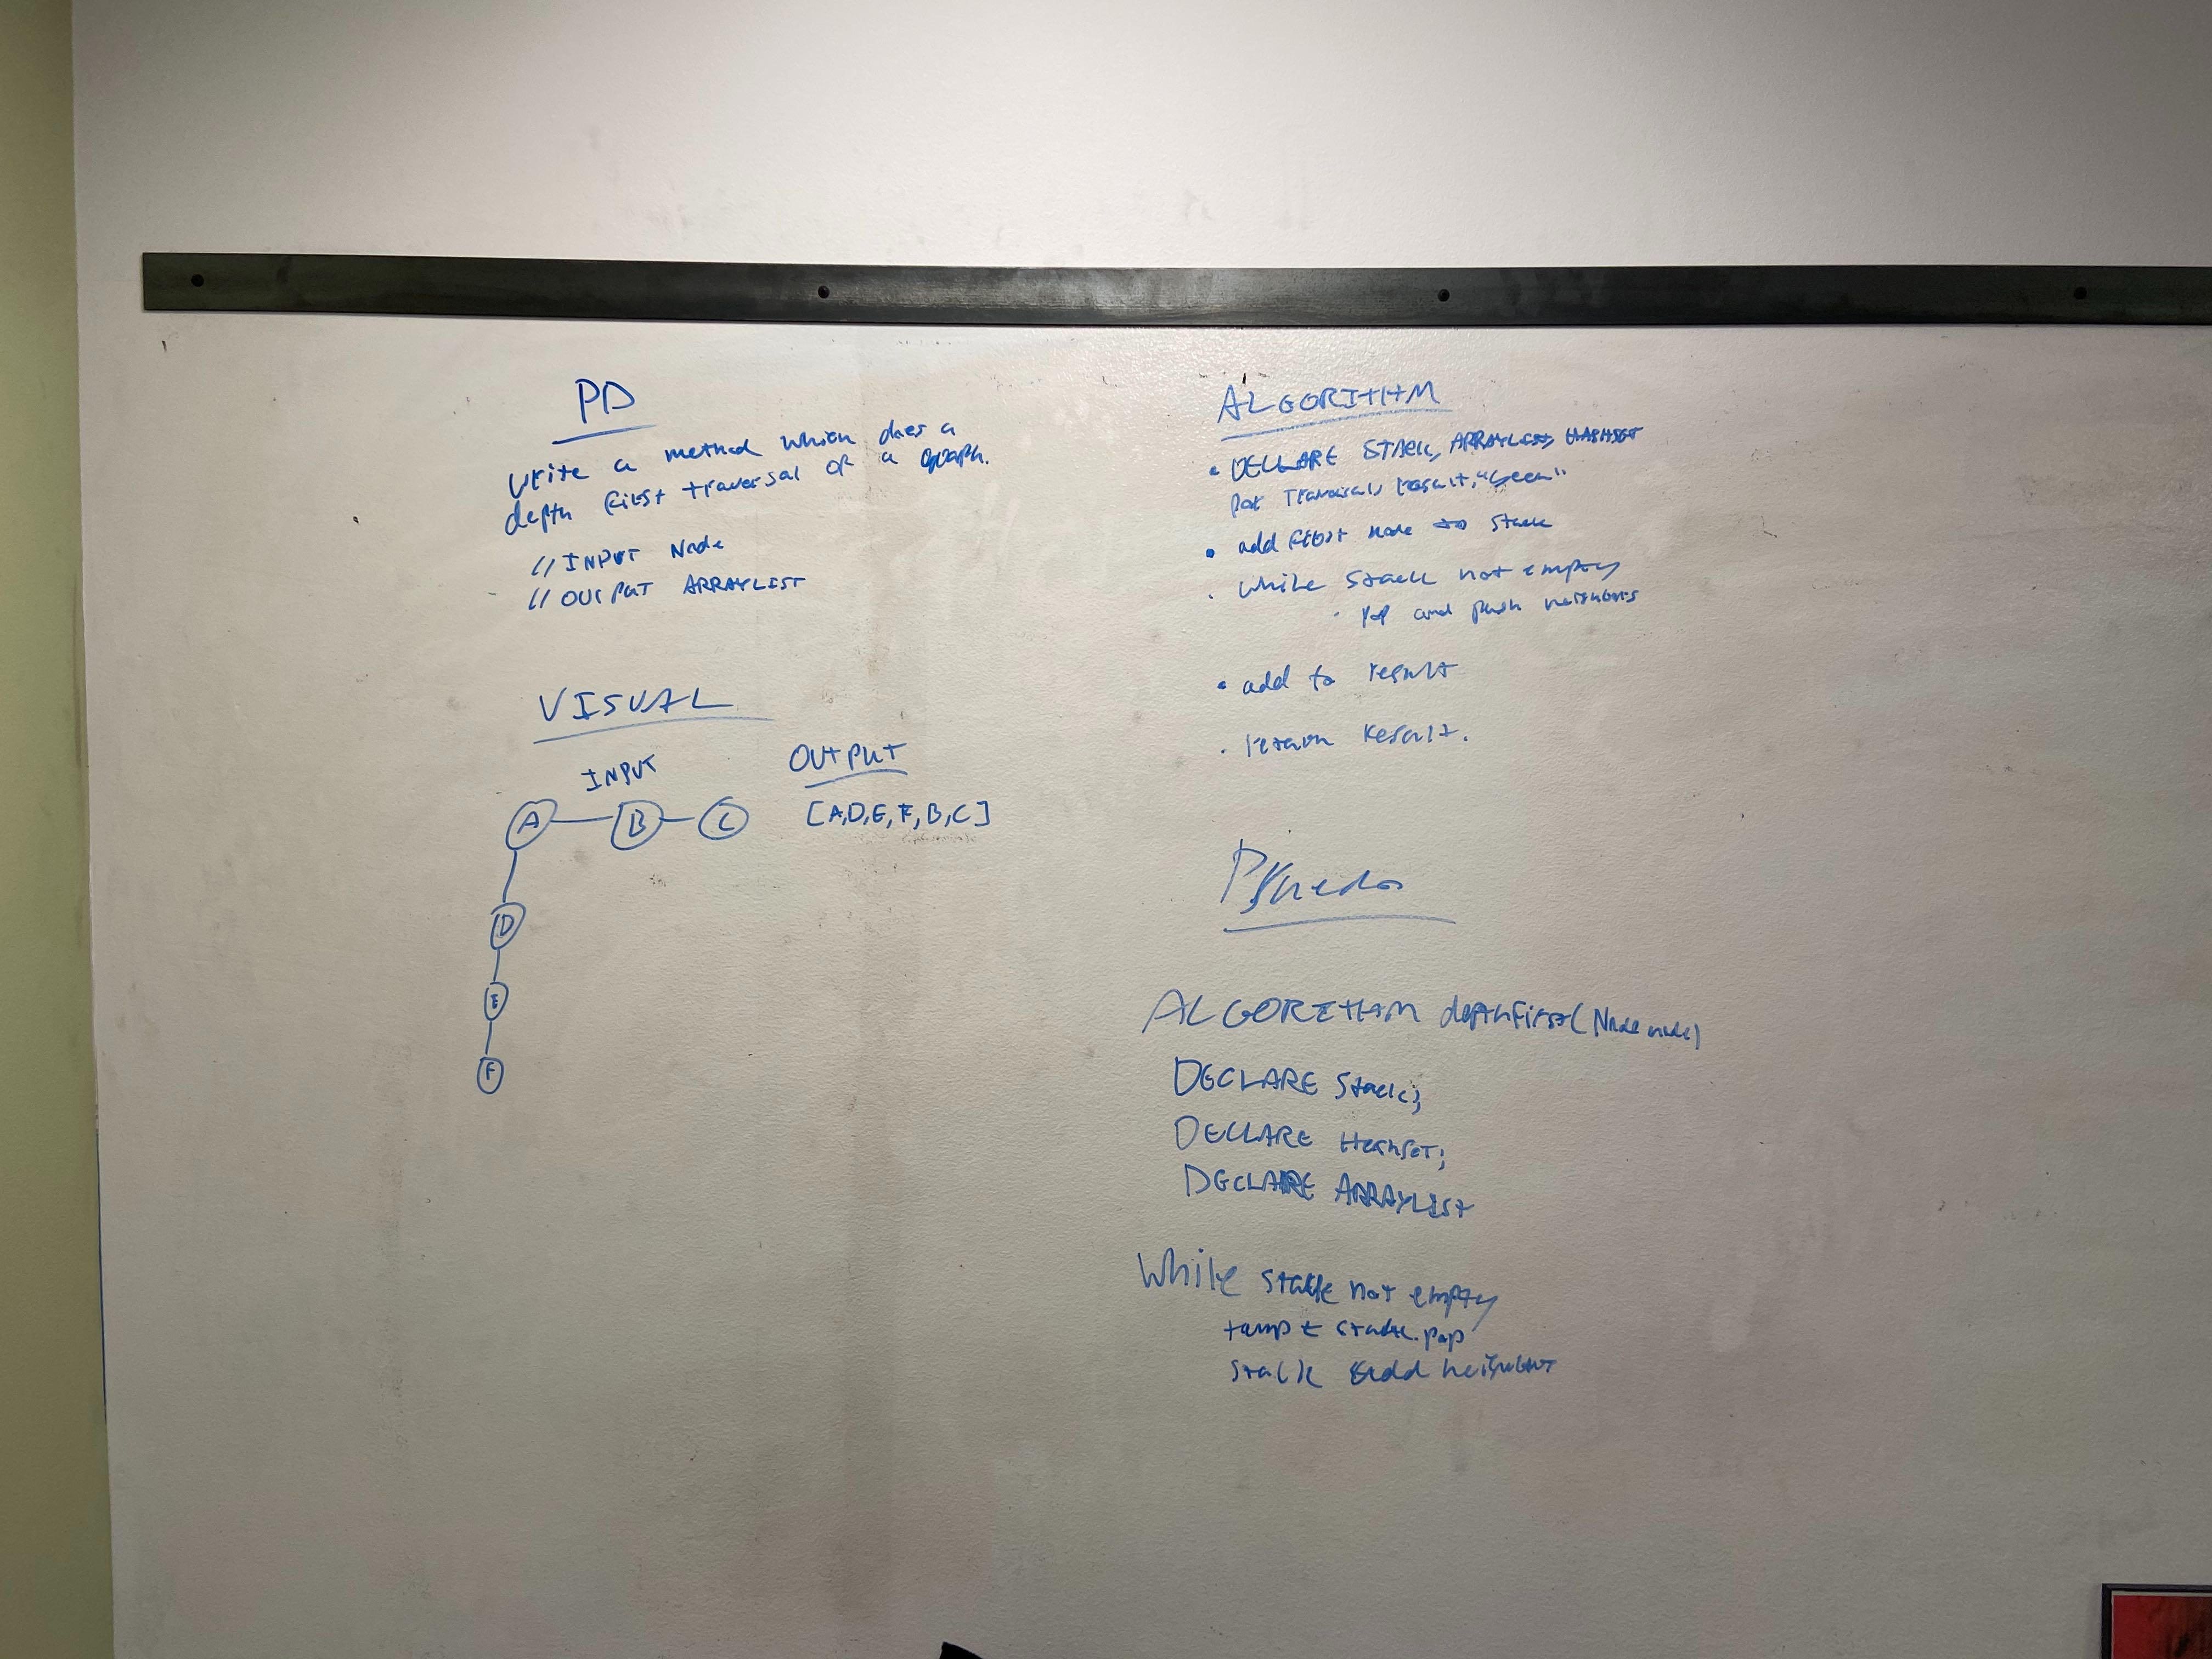 PD
write a method which does a
depth first traversal of a graph.
// INPUT Node
// OUTPUT ARRAYLIST
VISUAL
INPUT
A B C
D
E
F
OUTPUT
[A,D,E,F,B,C]
ALGORITHM
• DECLARE STACK, ARRAYLIST, HASHSET
for Traversal, result, "seen"
• add first node to stack
• while stack not empty
• pop and push neighbors
• add to result
• return result.
Psuedo
ALGORITHM depthFirst(Node node)
DECLARE Stack;
DECLARE HashSET;
DECLARE ARRAYLIST
While stack not empty
temp ← stack.pop
stack add neighbor